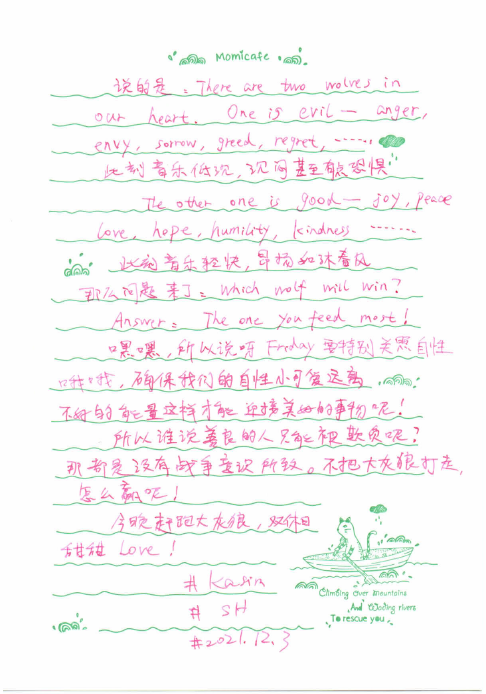 Momicafe
说的是：There are two wolves in
our heart. One is evil — anger,
envy, sorrow, greed, regret, ······
此刻音乐低沉，沉闷甚至有点恐惧
The other one is good — joy, peace
love, hope, humility, kindness ······
此刻音乐轻快，昂扬如沐春风
那么问题来了：which wolf will win?
Answer: The one you feed most!
嘿嘿，所以说呀 Friday 要特别关照自性
哦哦，确保我们的自性小可爱远离
不好的能量这样才能迎接美好的事物呢！
所以谁说善良的人只能被欺负呢？
那都是没有战争意识所致。不把大灰狼打走，
怎么赢呢！
今晚赶跑大灰狼，双休日
甜甜 Love！
# Kasin
# SH
#2021.12.3
Climbing Over Mountains
And Wading rivers
To rescue you